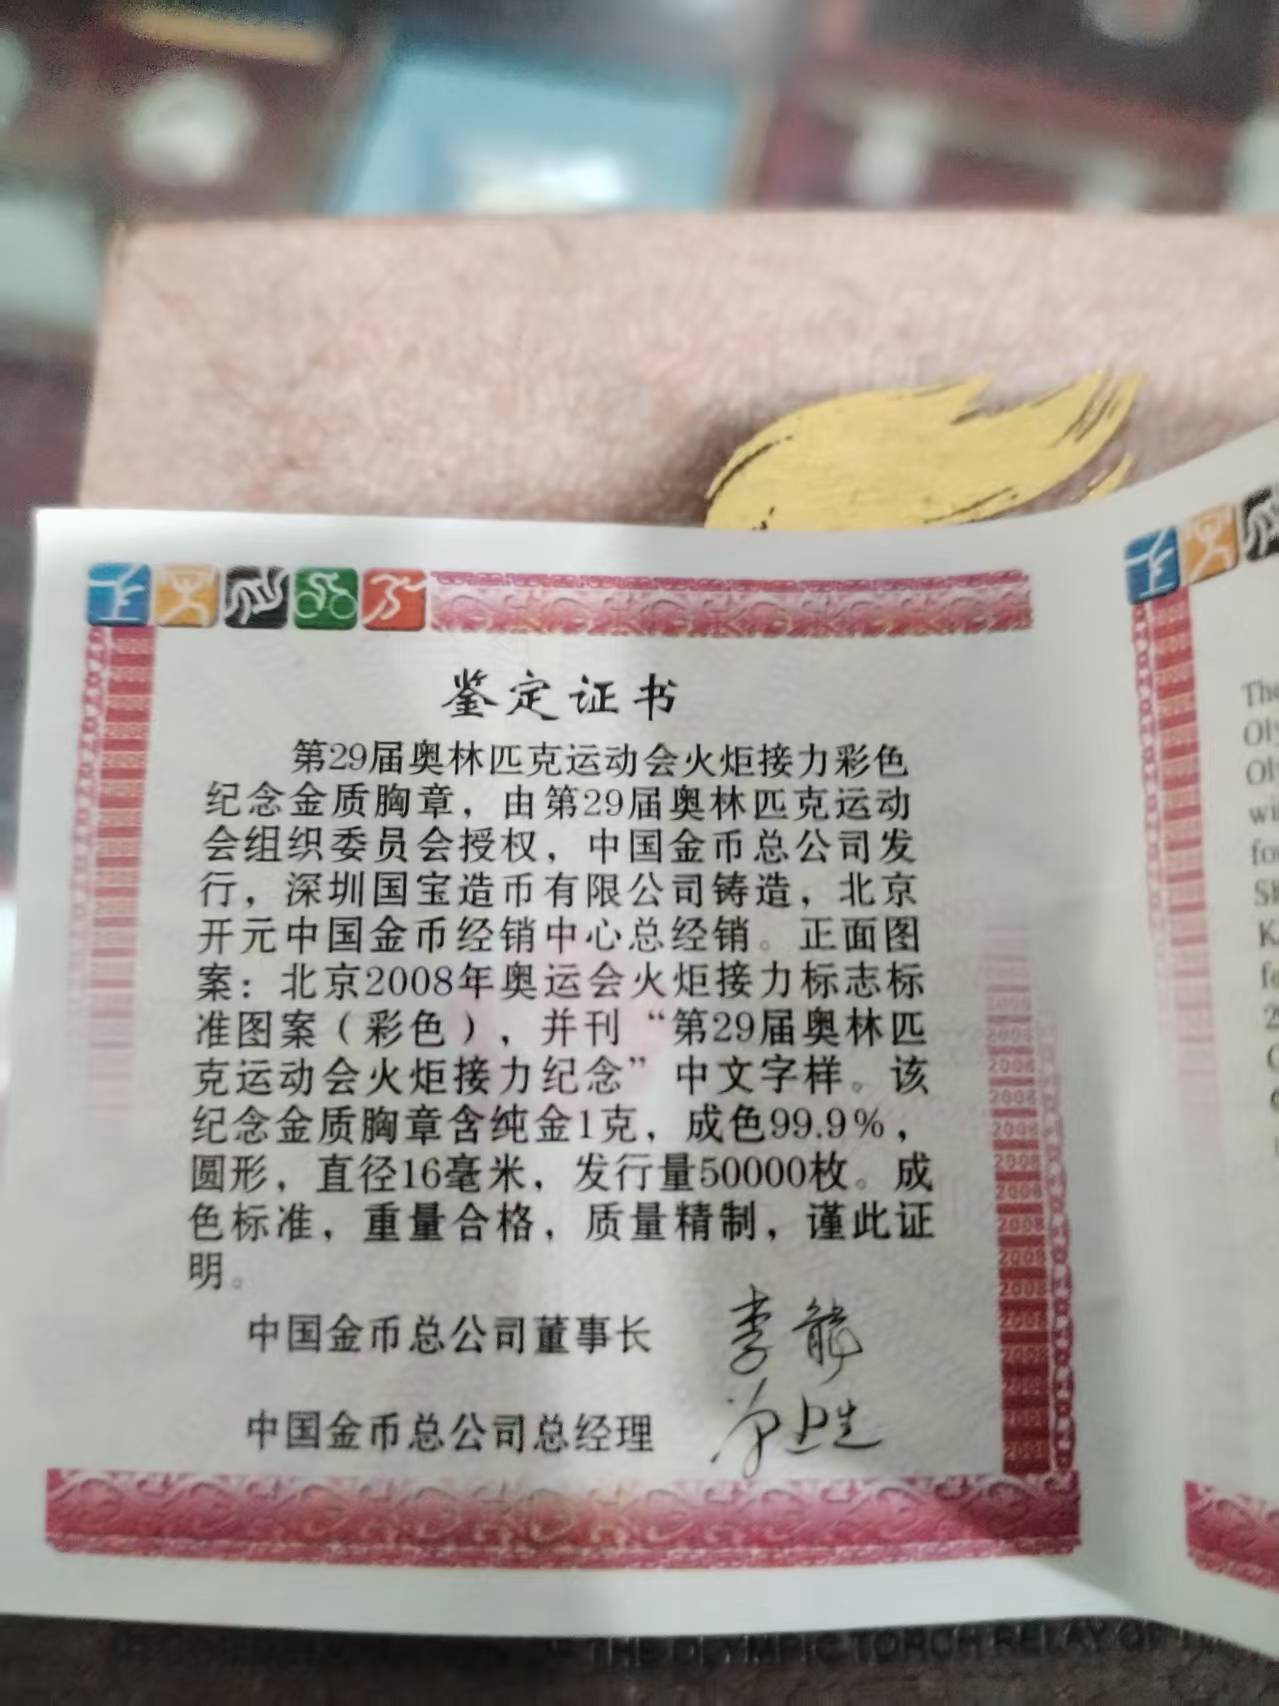 鉴定证书
第29届奥林匹克运动会火炬接力彩色
纪念金质胸章，由第29届奥林匹克运动
会组织委员会授权，中国金币总公司发
行，深圳国宝造币有限公司铸造，北京
开元中国金币经销中心总经销。正面图
案：北京2008年奥运会火炬接力标志标
准图案（彩色），并刊“第29届奥林匹
克运动会火炬接力纪念”中文字样。该
纪念金质胸章含纯金1克，成色99.9%，
圆形，直径16毫米，发行量50000枚。成
色标准，重量合格，质量精制，谨此证
明。
中国金币总公司董事长
中国金币总公司总经理
OF THE OLYMPIC TORCH RELAY OF